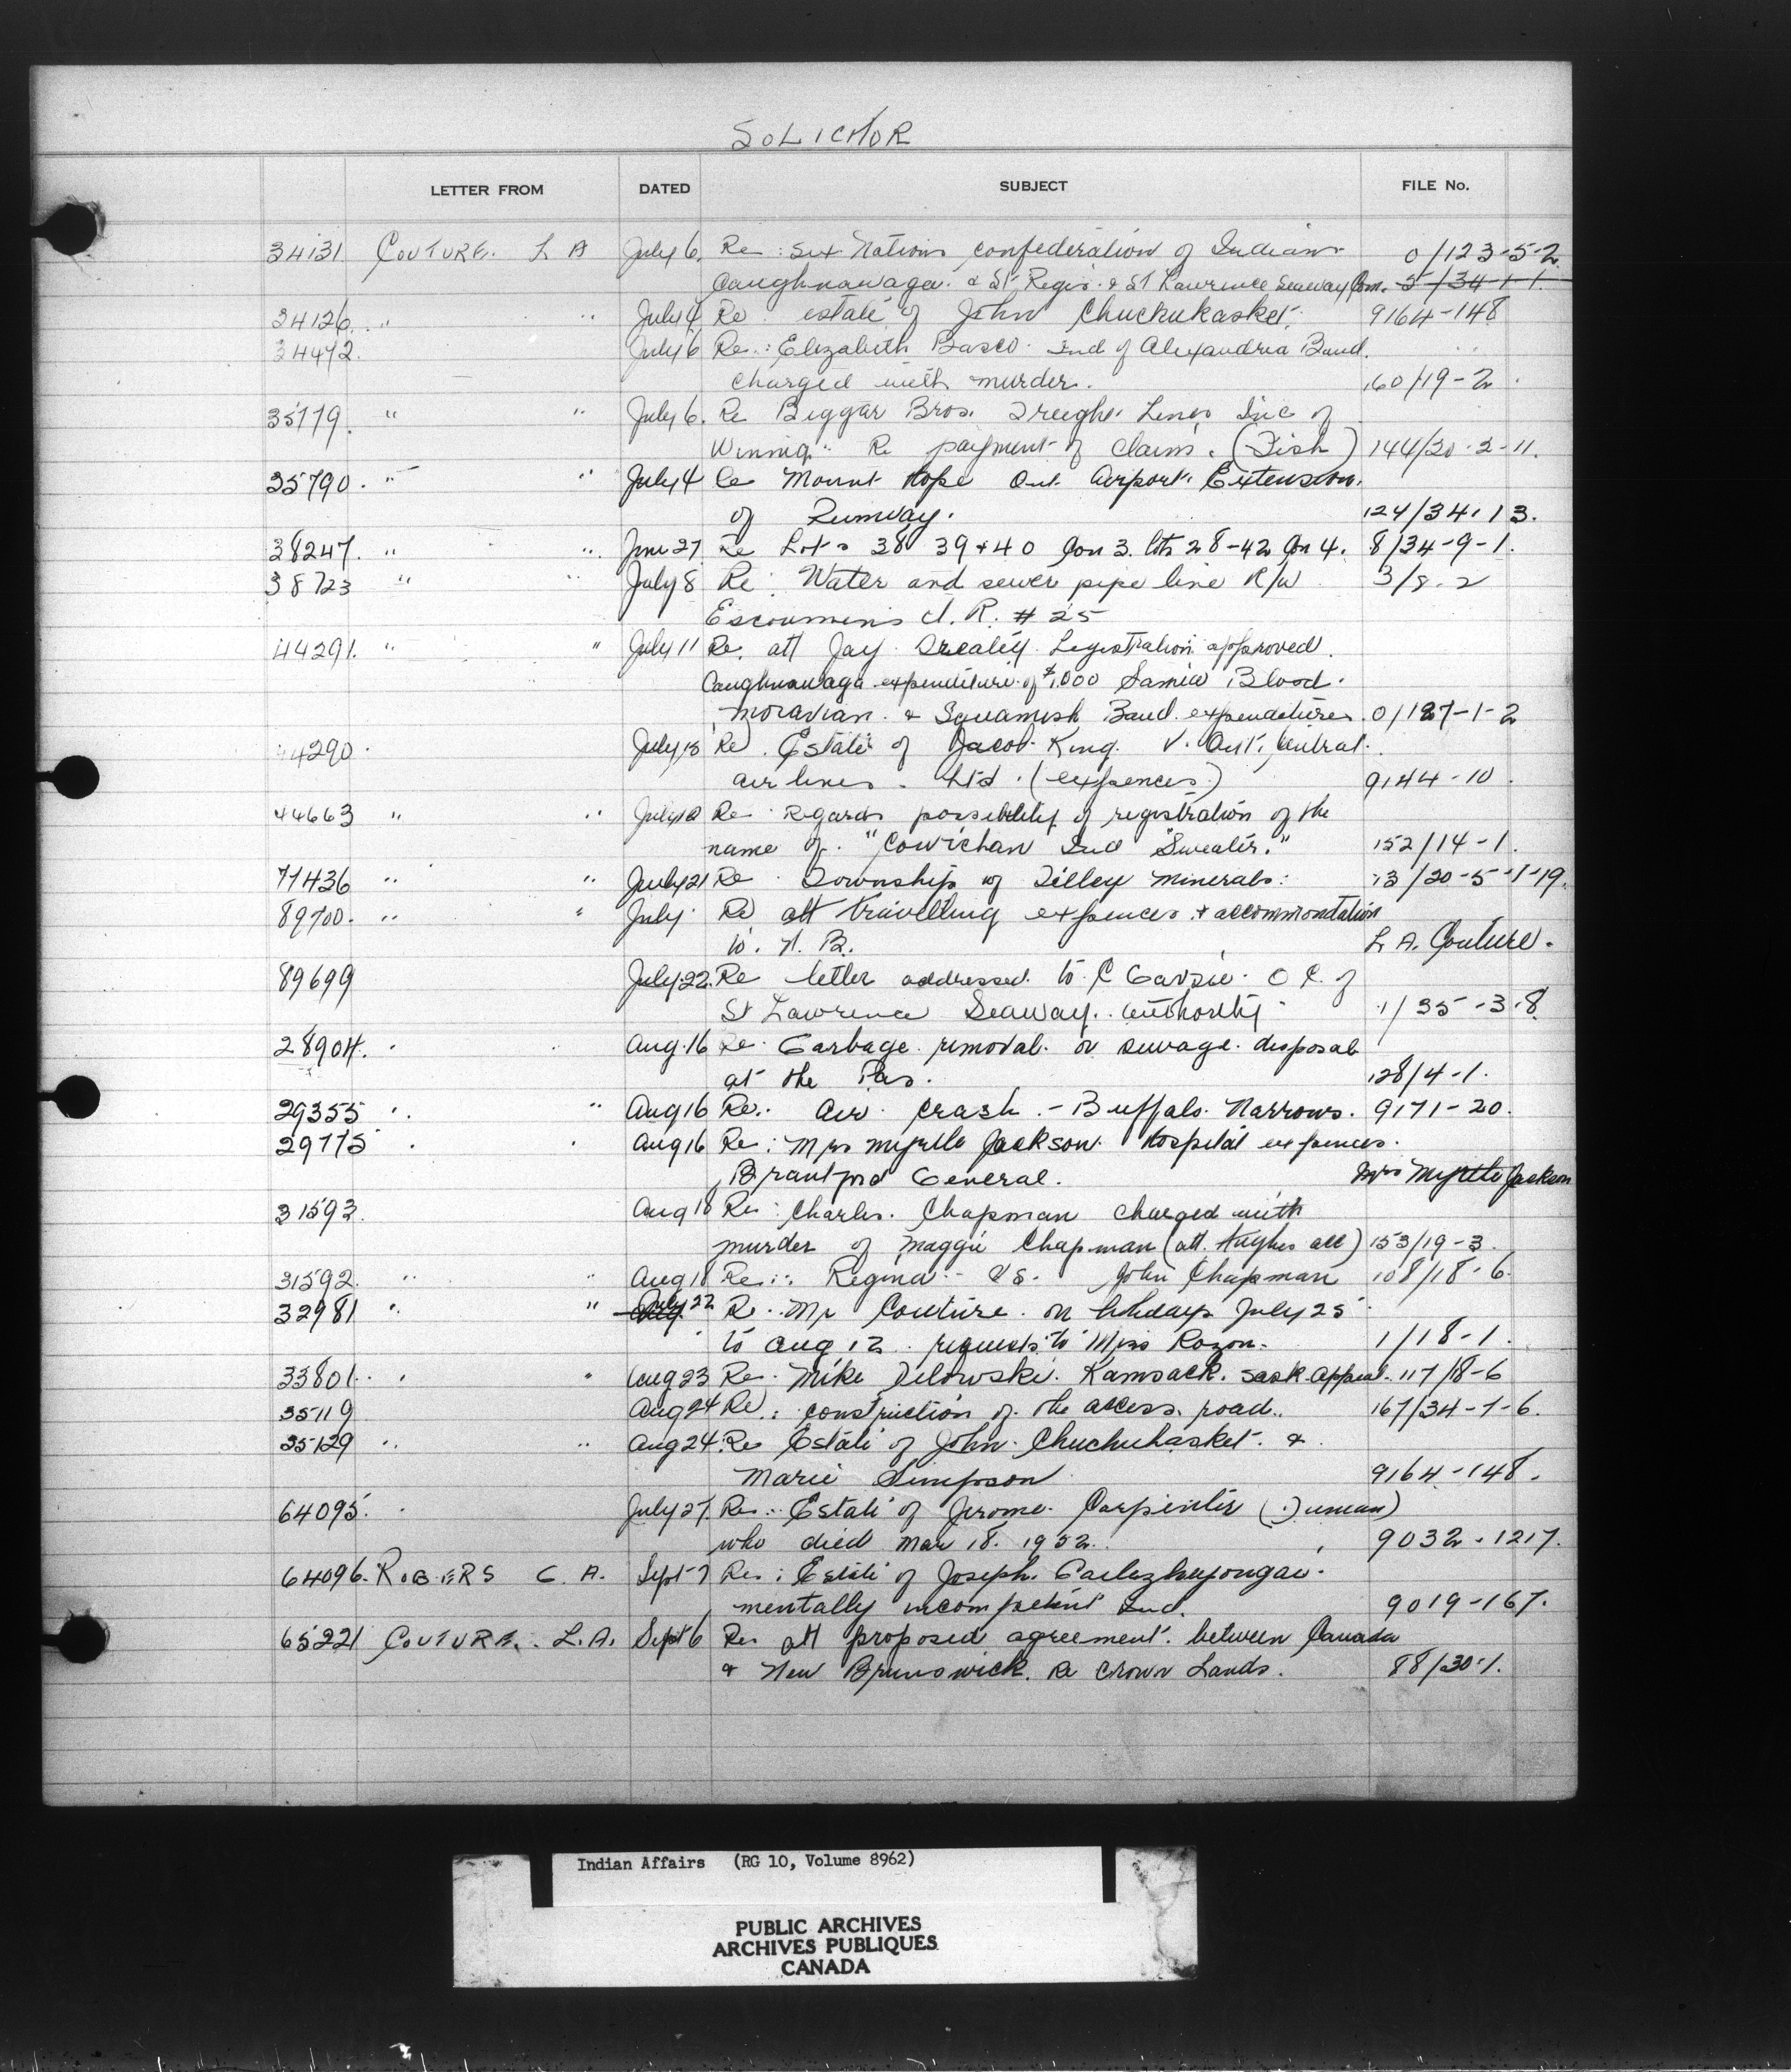 SOLICITOR
LETTER FROM DATED SUBJECT FILE No.
34131 COUTURE. L A July 6. Re: Six Nations confederation of Indians 0/123-5-2
Caughnawaga. & St Regis. & St Lawrence Seaway Com. 5/34-1-1.
34126. " " July 4 Re estate of John Chuchukasket. 9164-148
34472. July 6 Re.: Elizabeth Basco. Ind of Alexandria Band.
charged with murder. 160/19-2.
35779. " " July 6. Re Beggar Bros. Freight Lines Inc of
Winnig. Re payment of claim. (Fish) 144/20-2-11.
35790. " " July 4 Re Mount Hope Ont. Airport. Extension.
of Runway. 124/34.13.
38247. " " June 27 Re Lots 38 39 & 40 Con 3. lots 28-42 Con 4. 8/34-9-1.
38723 " " July 8 Re: Water and sewer pipe line R/W 3/8-2
Escoumins I.R. # 25
44291. " " July 11 Re. att Jay Treaty Legistration approved.
Caughnawaga expenditure of $1,000 Blood.
Moravian. & Squamish Band expenditures. 0/127-1-2
44290. July 18 Re. Estate of Jacob King. v. Ont. Central
air lines. Ltd. (expences.) 9144-10.
44663 " " Re Regards possibility of registration of the
name of. "Cowichan Ind Sweater." 152/14-1.
77436 " " July 21 Re. Township of Tilley Minerals: 13/20-5-1-19.
89700. " " July. Re att travelling expences & accommondation
to. N. B. L. A. Couture.
89699 July 22. Re letter addressed to C of
St Lawrence Seaway. authority 1/35-3-8.
28904. Aug. 16 Re. Garbage removal. or sewage disposal
at the Pas. 128/4-1.
29355 " " Aug 16 Re. air crash. - Buffalo Narrows. 9171-20.
29775 Aug 16 Re: Mrs Myrtle Jackson. Hospital expences.
Brantford General. Mrs Myrtle Jackson
31593. Aug 18 Re: Charles. Chapman charged with
murder of Maggie Chapman (att. Hughes acc) 153/19-3.
31592. " " Aug 18 Re: Regina vs. John Chapman 108/18-6.
32981 " " Aug. July 22 Re. Mr Couture. on holidays July 25
to Aug 12. requests to Miss Rozon. 1/18-1.
33801. " " Aug 23 Re. Mike Kamsack. Sask. Appeal. 117/18-6
35119 Aug 24 Re: construction of the access road. 167/34-7-6.
35129 " " Aug 24. Re Estate of John Chuchuhasket. &
Marie Simpson 9164-148.
64095. July 27. Re: Estate of Jerome Carpenter
who died Mar 18. 1952. 9032-1217.
64096. ROGERS C. A. Sept 7 Re: Estate of Joseph
mentally incompetent Ind. 9019-167.
65221 COUTURE. L.A. Sept 6 Re att proposed agreement. between Canada
& New Brunswick. Re Crown Lands. 88/30-1.
Indian Affairs (RG 10, Volume 8962)
PUBLIC ARCHIVES
ARCHIVES PUBLIQUES
CANADA